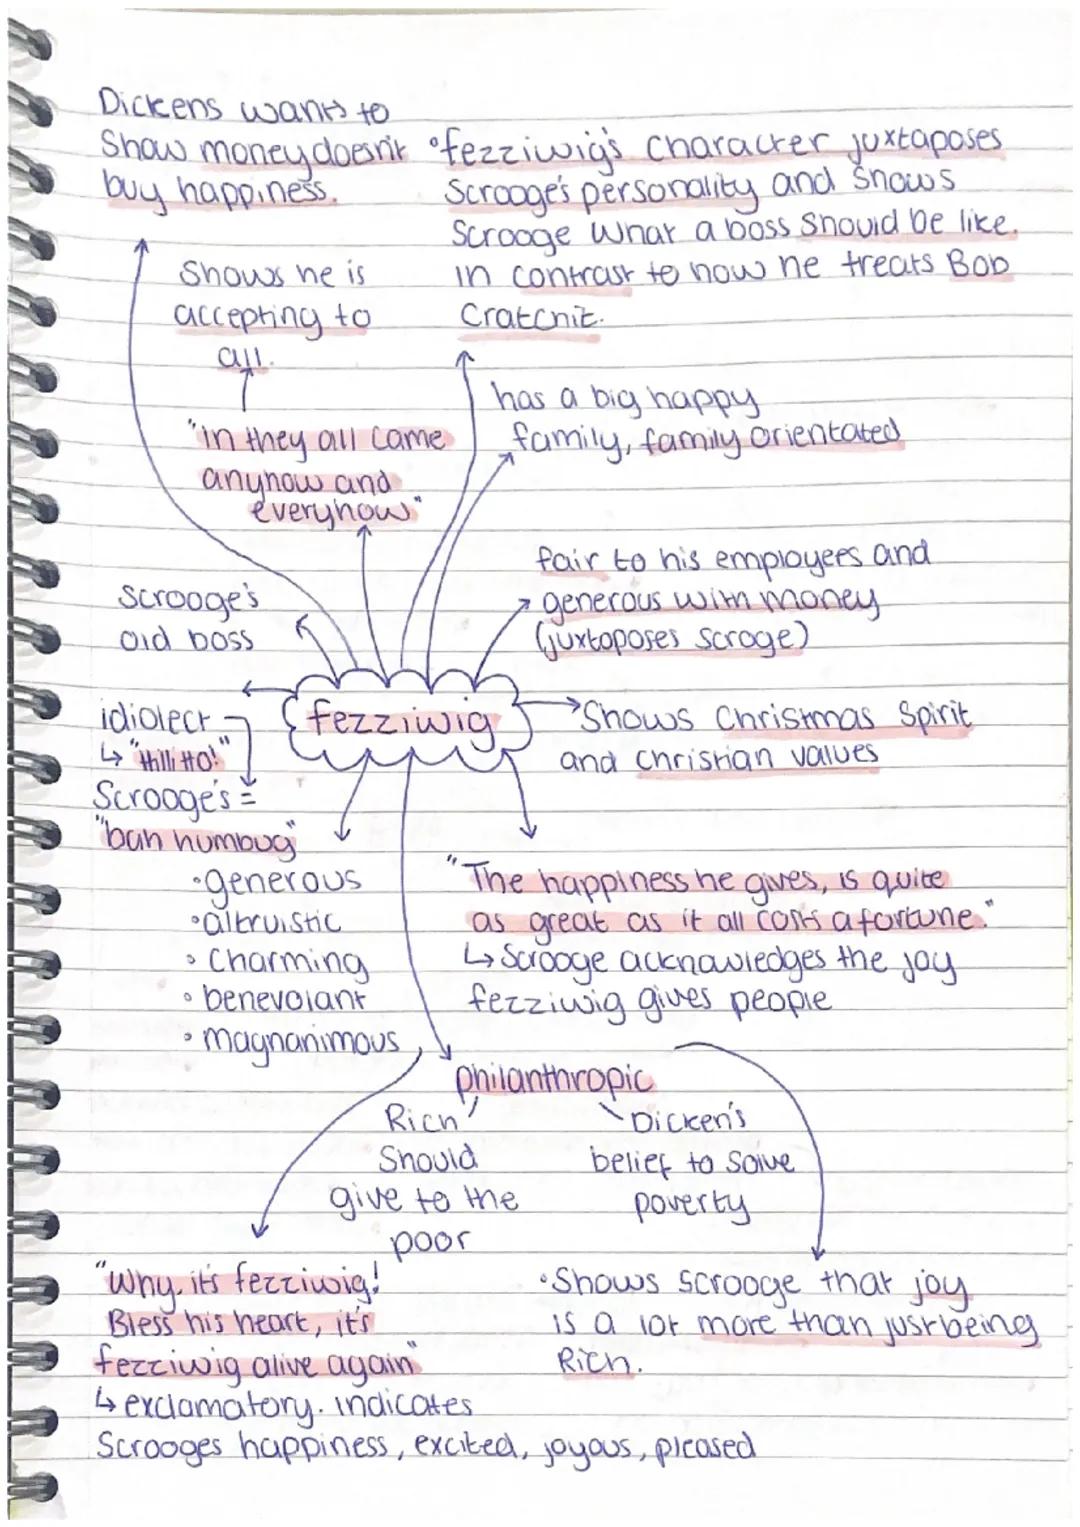 Dickens wants to
Show money doesn't
buy happiness.
•fezziwig's character juxtaposes
Scrooge's personality and shows
Scrooge what a boss should be like.
in contrast to how he treats Bob
Cratchit.
Shows he is
accepting to
all.
"in they all came
anyhow and
everyhow"
has a big happy
family, family orientated
fair to his employers and
generous with money
(juxtoposes Scroge)
Scrooge's
old boss
fezziwig
idiolect
↳ "Hilli Ho!"
Scrooge's =
"bah humbug"
Shows Christmas Spirit
and christian values
•generous
•altruistic
•Charming
•benevolant
•magnanimous
"The happiness he gives, is quite
as great as it all costs a fortune."
↳ Scrooge acknowledges the joy
fezziwig gives people
philanthropic
Rich
Should
give to the
poor
Dicken's
belief to solve
poverty
"Why, it's fezziwig!
Bless his heart, it's
fezziwig alive again"
↳ exclamatory. indicates
Scrooges happiness, excited, joyous, pleased
•Shows Scrooge that joy
is a lot more than just being
Rich.